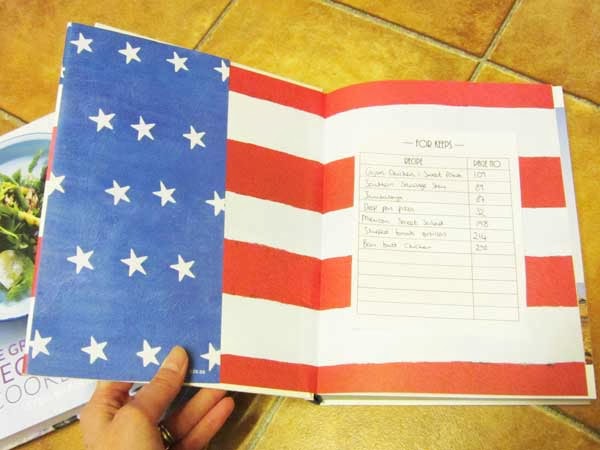 — FOR KEEPS —
RECIPE PAGE NO
Cajun Chicken & Sweet Potato 109
Southern Sausage Stew 89
Jambalaya 87
Deep pan pizza 32
Mexican Street Salad 198
Stuffed 214
Beer butt Chicken 250
E GR
COOK